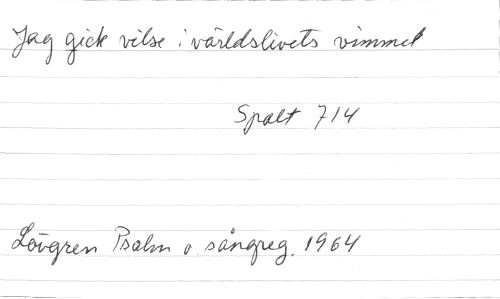 Jag gick vilse i världslivets vimmel
Spalt 714
Lövgren Psalm o sångreg. 1964